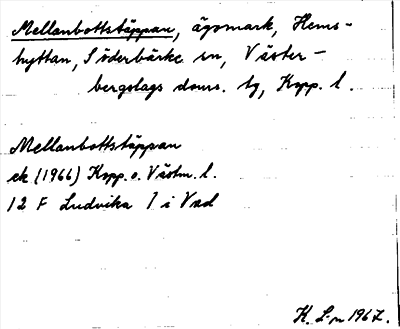 Mellanbottstäppan, ägomark, Hems-
hyttan, Söderbärke sn, Väster-
bergslags doms. tg, Kopp. l.
Mellanbottstäppan
ek (1966) Kopp. o. Västm. l.
12 F Ludvika 7 i Vad
K. L-m 1967.